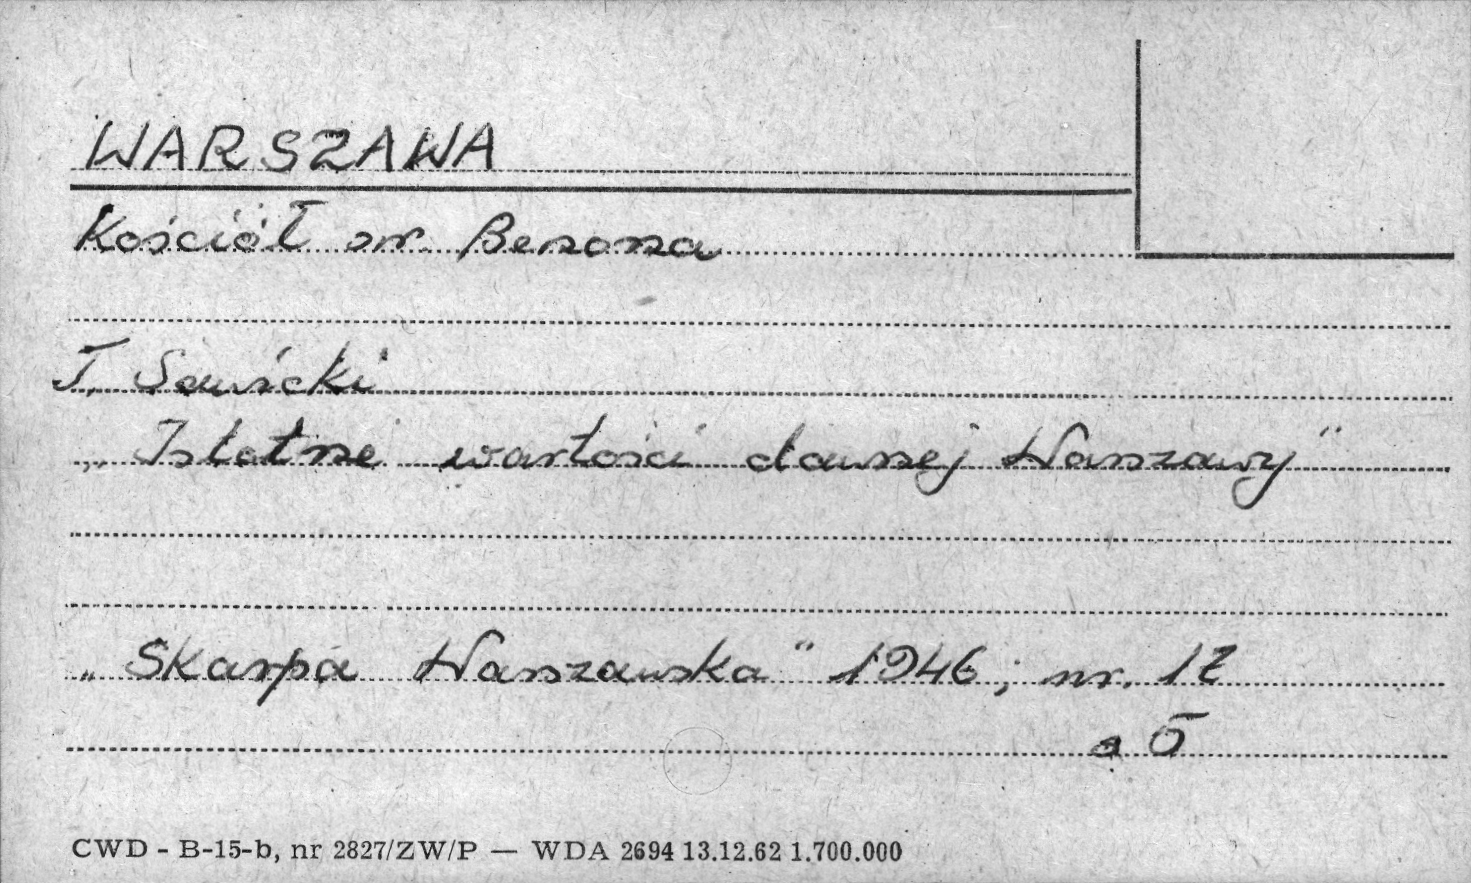 WARSZAWA
Kościół św. Benona
T. Sawicki
„Istotne wartości dawnej Warszawy"
„Skarpa Warszawska" 1946, nr. 12
s 5
CWD - B-15-b, nr 2827/ZW/P — WDA 2694 13.12.62 1.700.000